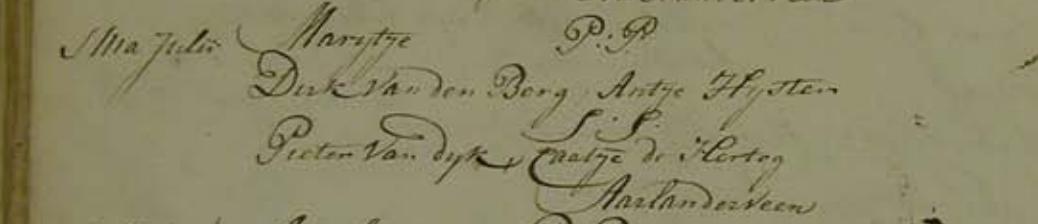 5ma Julii Marijtje P: P
Dirk Van den Borg, Antje Hysten
S: S:
Pieter Van dyk, Caatje de Hertog
Aarlanderveen